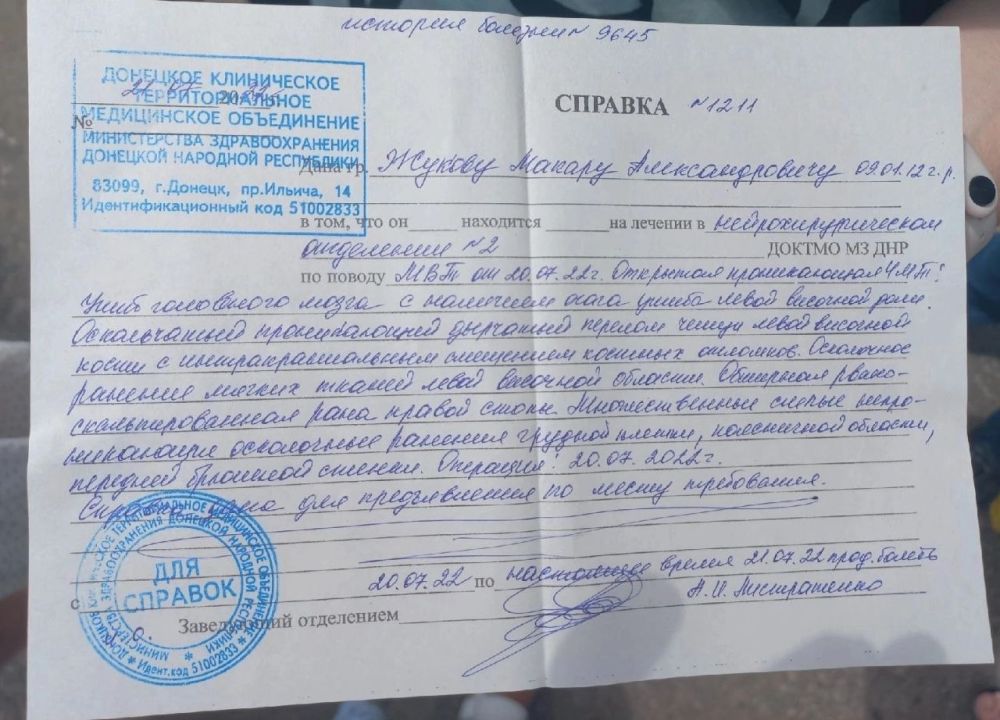 история болезни № 9645
ДОНЕЦКОЕ КЛИНИЧЕСКОЕ
ТЕРРИТОРИАЛЬНОЕ
МЕДИЦИНСКОЕ ОБЪЕДИНЕНИЕ
МИНИСТЕРСТВА ЗДРАВООХРАНЕНИЯ
ДОНЕЦКОЙ НАРОДНОЙ РЕСПУБЛИКИ
83099, г.Донецк, пр.Ильича, 14
Идентификационный код 51002833
21.07 2022г.
№
СПРАВКА №1211
Дана гр. Жукову Макару Александровичу 09.01.12 г.р.
в том, что он находится на лечении в нейрохирургическом
отделении №2 ДОКТМО МЗ ДНР
по поводу МВТ от 20.07.22г. Открытая проникающая ЧМТ:
Ушиб головного мозга с наличием очага ушиба левой височной доли.
Оскольчатый проникающий дырчатый перелом чешуи левой височной
кости с интракраниальным смещением костных отломков. Осколочное
ранение мягких тканей левой височной области. Обширная рвано-
скальпированная рана правой стопы. Множественные слепые непро-
никающие осколочные ранения грудной клетки, поясничной области,
передней брюшной стенки. Операция: 20.07.2022г.
Справка дана для предъявления по месту требования.
с 20.07.22 по настоящее время 21.07.22 прод. болеть
Заведующий отделением
ДЛЯ
СПРАВОК
Идент.код 51002833